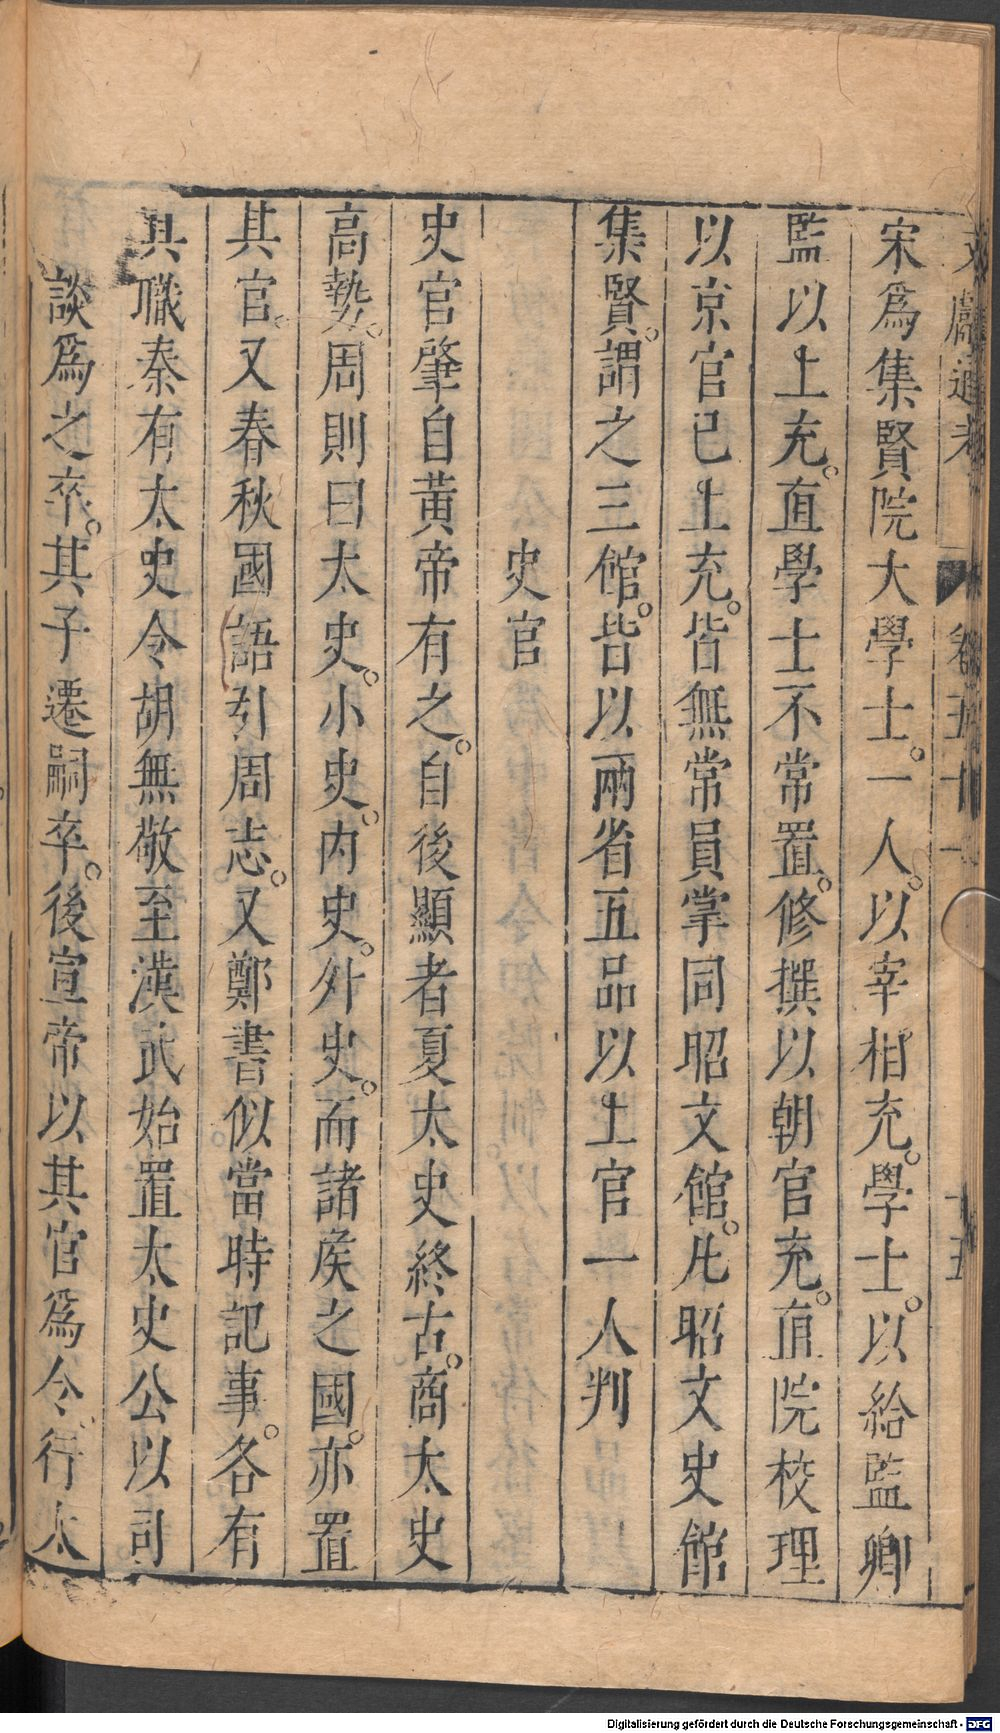 文獻通考 卷五十一 十五
宋爲集賢院大學士。一人。以宰相充。學士。以給監卿
監以上充。直學士不常置。修撰以朝官充。直院校理
以京官已上充。皆無常員掌同昭文館。凡昭文史館
集賢。謂之三館。皆以兩省五品以上官一人判
史官
史官肇自黃帝有之。自後顯者夏太史終古。商太史
高勢。周則曰太史。小史。內史。外史。而諸侯之國。亦置
其官。又春秋國語引周志。又鄭書似當時記事。各有
其職秦有太史令胡無敬至漢武始置太史公以司
談爲之卒。其子遷嗣卒。後宣帝以其官爲令行太
Digitalisierung gefördert durch die Deutsche Forschungsgemeinschaft - DFG